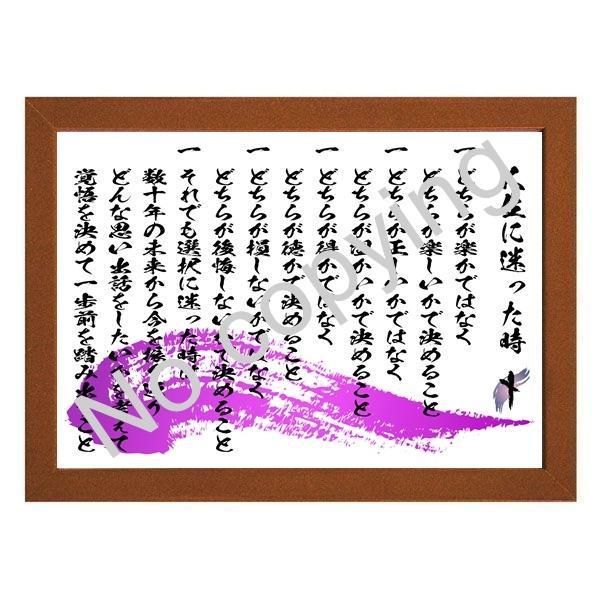 人生に迷った時
一 どちらが楽かではなく
どちらが楽しいかで決めること
一 どちらが正しいかではなく
どちらが温かいかで決めること
一 どちらが得かではなく
どちらが徳かで決めること
一 どちらが損しないかではなく
どちらが後悔しないかで決めること
一 それでも選択に迷った時は
数十年の未来から今を振り返り
どんな思い出話をしたいかを考えて
覚悟を決めて一歩前を踏み出すこと
No copying